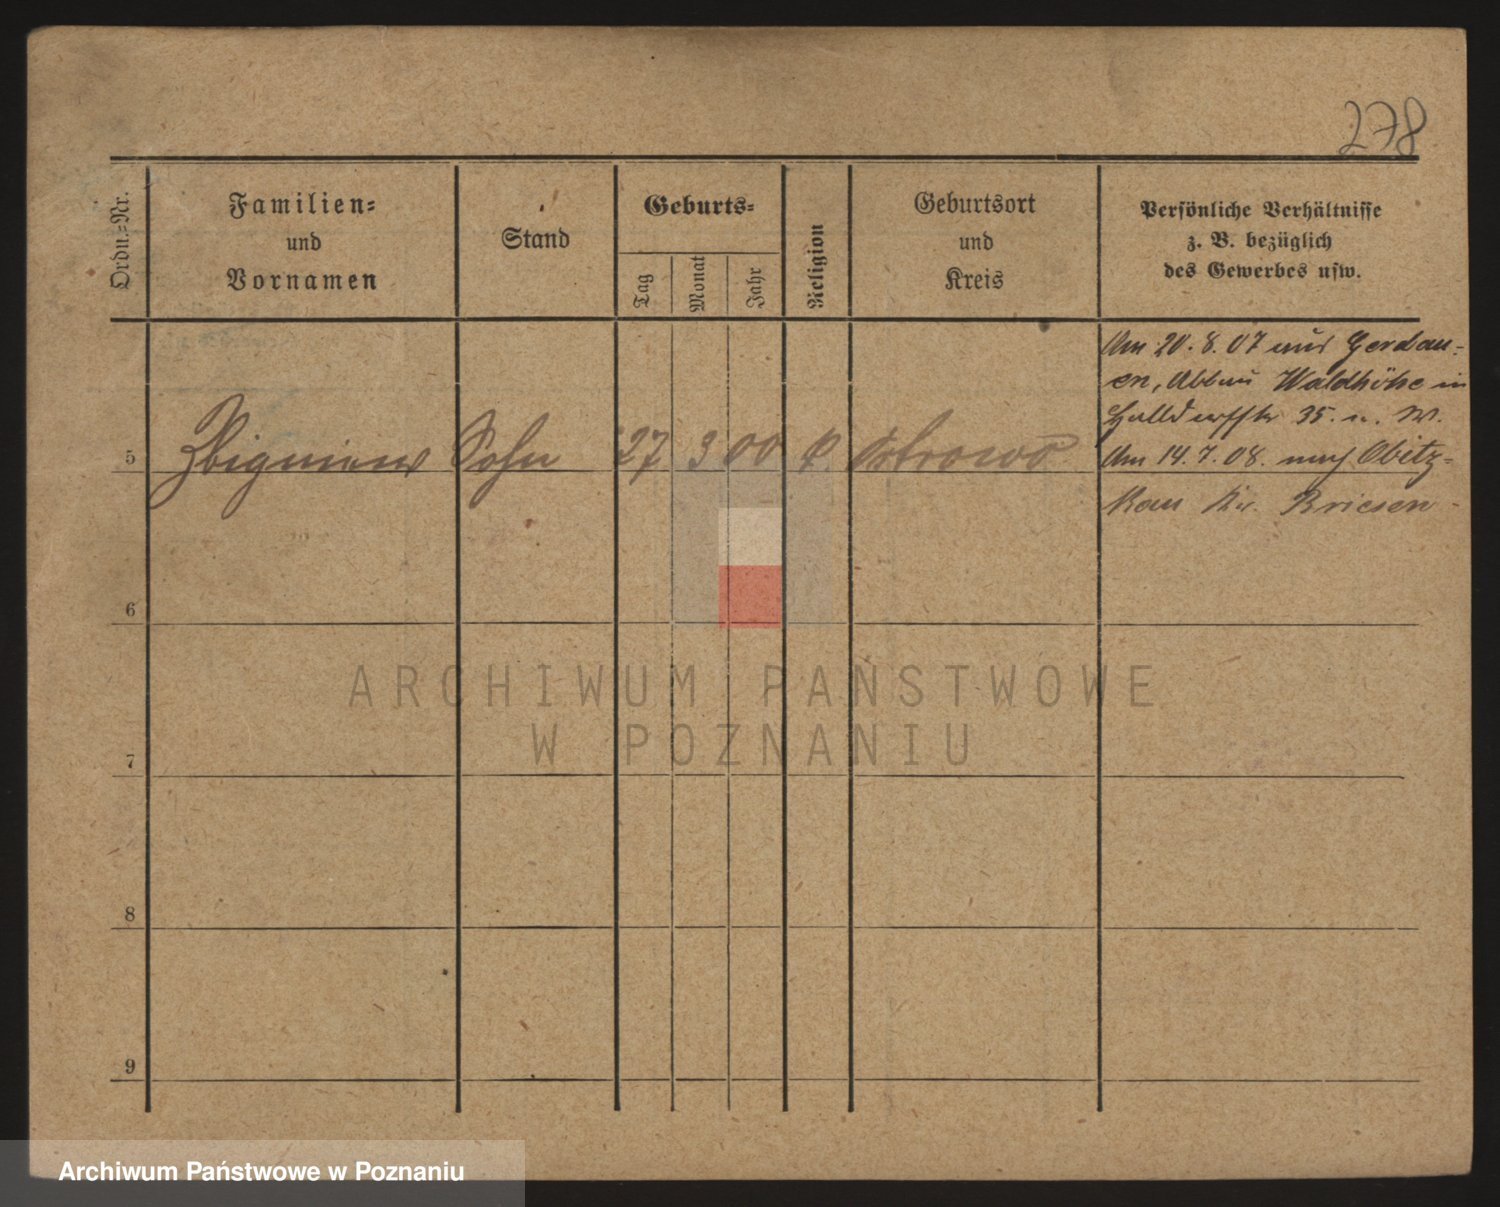 278
Ordn.-Nr.
Familien-
und
Vornamen
Stand
Geburts-
Tag
Monat
Jahr
Religion
Geburtsort
und
Kreis
Persönliche Verhältnisse
z. B. bezüglich
des Gewerbes usw.
5
Zbigniew Sohn 27 3 00 k. Ostrowo
Am 20.8.07 aus Gerdau-
en, Abbau Waldhöhe in
35. b. W.
Am 14.7.08. nach Obitz-
kau Kr. Briesen
6
7
8
9
ARCHIWUM PAŃSTWOWE
W POZNANIU
Archiwum Państwowe w Poznaniu